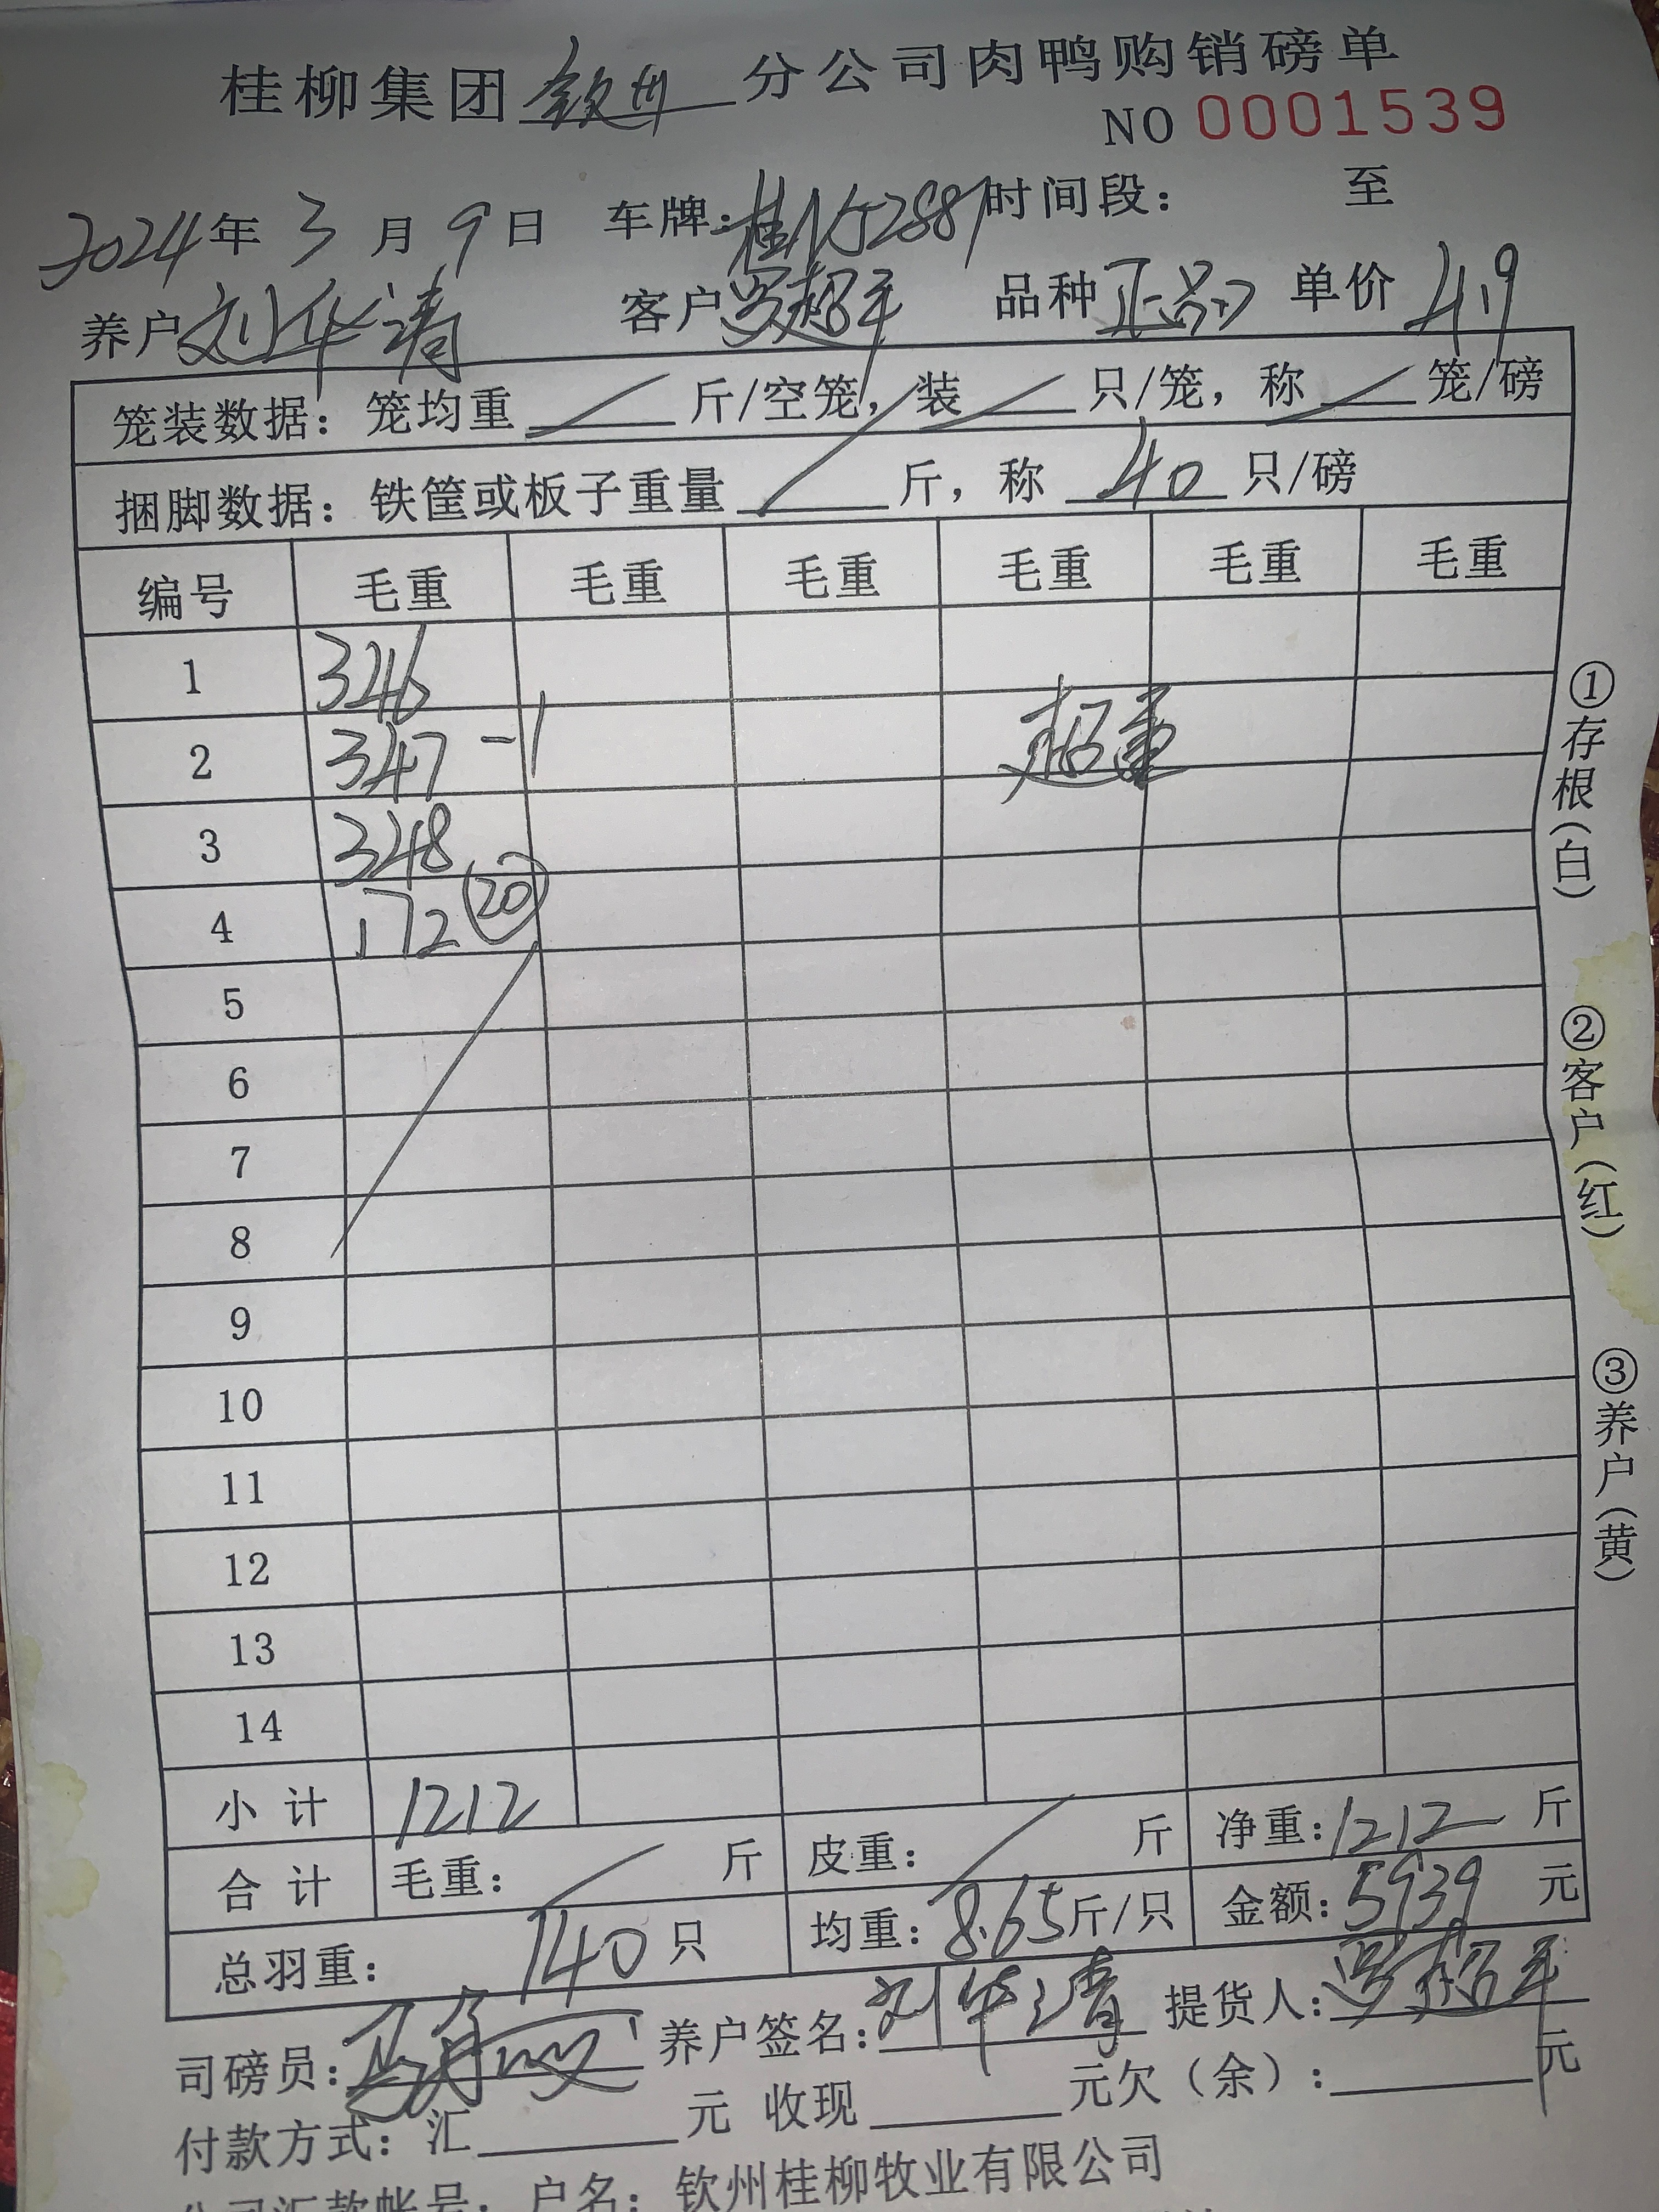 桂柳集团 钦州 分公司肉鸭购销磅单
NO 0001539
2024年 3 月 9 日 车牌: 桂N 2887 时间段: 至
养户 刘华清 客户 罗超平 品种 正品 单价 4.9
笼装数据: 笼均重 斤/空笼, 装 只/笼, 称 笼/磅
捆脚数据: 铁筐或板子重量 斤, 称 40 只/磅
编号 毛重 毛重 毛重 毛重 毛重 毛重
1 346
2 347 -1 超重
3 348
4 172 (20)
5
6
7
8
9
10
11
12
13
14
小计 1212
合计 毛重: 斤 皮重: 斤 净重: 1212 斤
总羽重: 140 只 均重: 8.65 斤/只 金额: 5939 元
司磅员: 养户签名: 刘华清 提货人: 罗超平
付款方式: 汇 元 收现 元欠(余): 元
公司汇款帐号: 户名: 钦州桂柳牧业有限公司
①存根(白)
②客户(红)
③养户(黄)